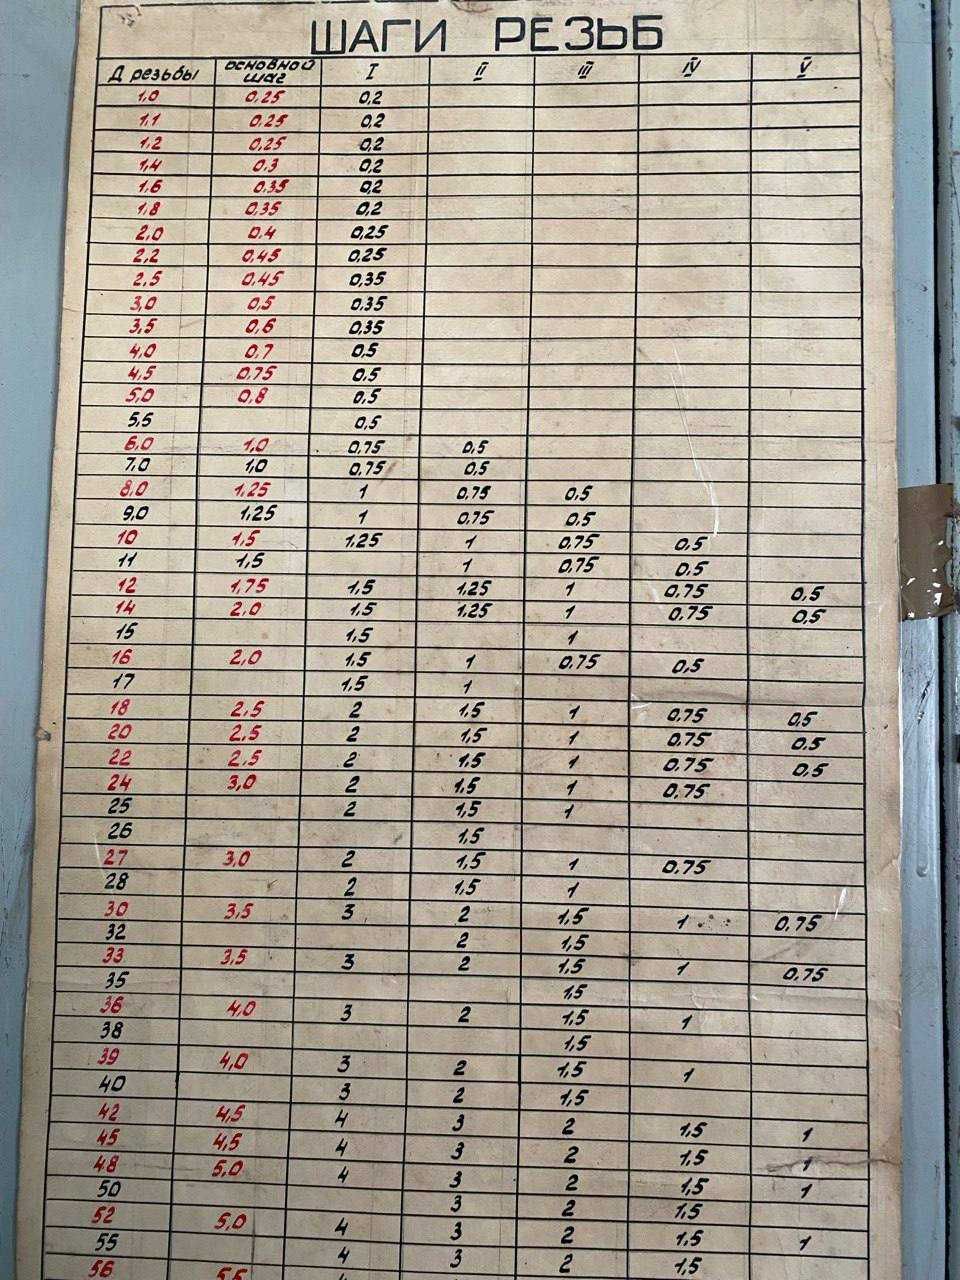 ШАГИ РЕЗЬБ
Д резьбы основной шаг I II III IV V
1,0 0,25 0,2
1,1 0,25 0,2
1,2 0,25 0,2
1,4 0.3 0,2
1.6 0.35 0,2
1,8 0,35 0,2
2,0 0.4 0,25
2,2 0,45 0,25
2.5 0.45 0,35
3,0 0,5 0.35
3,5 0,6 0,35
4,0 0,7 0,5
4,5 0.75 0,5
5,0 0,8 0,5
5,5 0,5
6,0 1,0 0,75 0.5
7,0 1,0 0,75 0,5
8,0 1,25 1 0,75 0,5
9,0 1,25 1 0,75 0,5
10 1,5 1,25 1 0,75 0,5
11 1,5 1 0,75 0,5
12 1,75 1,5 1,25 1 0,75 0,5
14 2,0 1,5 1,25 1 0,75 0,5
15 1,5 1
16 2,0 1,5 1 0.75 0,5
17 1,5 1
18 2,5 2 1,5 1 0,75 0,5
20 2,5 2 1,5 1 0,75 0,5
22 2,5 2 1,5 1 0,75 0,5
24 3,0 2 1,5 1 0,75
25 2 1,5 1
26 1,5
27 3,0 2 1,5 1 0,75
28 2 1,5 1
30 3,5 3 2 1,5 1 0,75
32 2 1,5
33 3,5 3 2 1,5 1 0,75
35 1,5
36 4,0 3 2 1,5 1
38 1,5
39 4,0 3 2 1,5 1
40 3 2 1,5
42 4,5 4 3 2 1,5 1
45 4,5 4 3 2 1,5 1
48 5,0 4 3 2 1,5 1
50 3 2 1,5
52 5,0 4 3 2 1,5 1
55 4 3 2 1,5
56 5,5 4